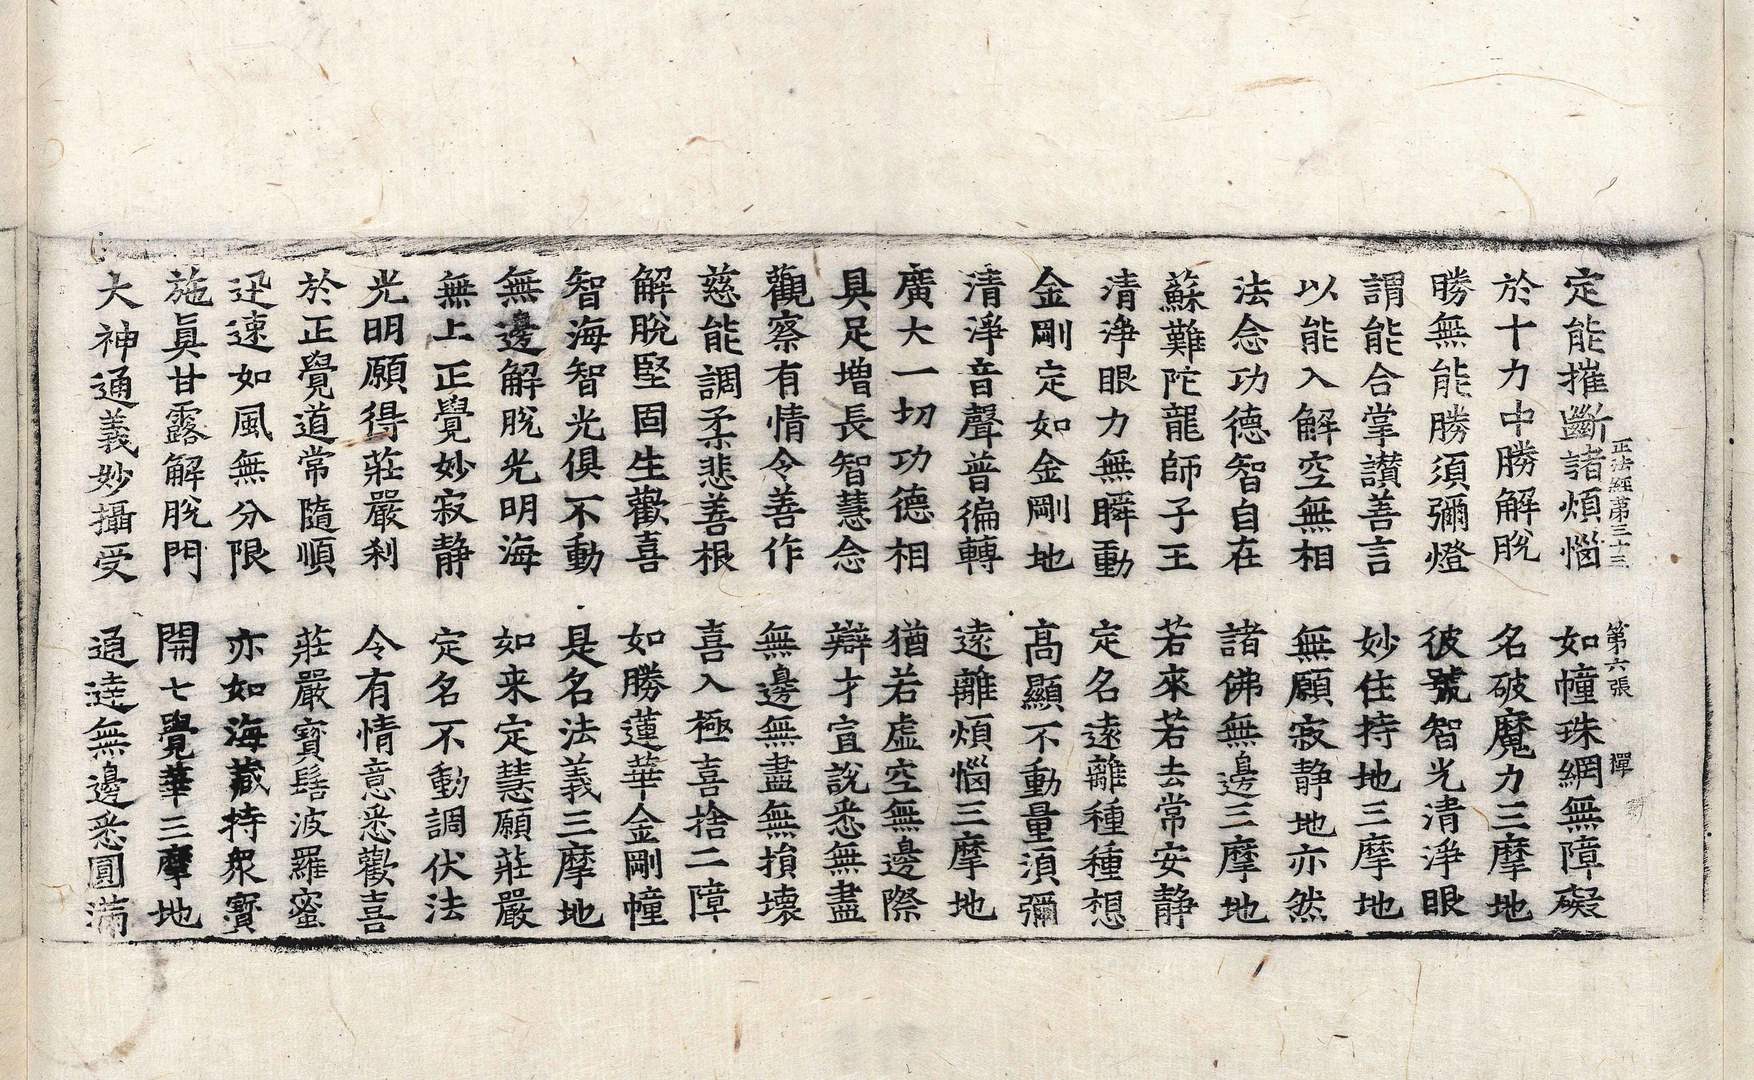 正法經第三十三 第六張 憚
定能摧斷諸煩惱 如幢珠網無障礙
於十力中勝解脫 名破魔力三摩地
勝無能勝須彌燈 彼號智光清淨眼
謂能合掌讃善言 妙住持地三摩地
以能入解空無相 無願寂静地亦然
法念功德智自在 諸佛無邊三摩地
蘇難陀龍師子王 若來若去常安静
清淨眼力無瞬動 定名遠離種種想
金剛定如金剛地 高顯不動量須彌
清淨音聲普徧轉 遠離煩惱三摩地
廣大一切功德相 猶若虛空無邊際
具足增長智慧念 辯才宣說悉無盡
觀察有情令善作 無邊無盡無損壞
慈能調柔悲善根 喜入極喜捨二障
解脫堅固生歡喜 如勝蓮華金剛幢
智海智光俱不動 是名法義三摩地
無邊解脫光明海 如来定慧願莊嚴
無上正覺妙寂静 定名不動調伏法
光明願得莊嚴刹 令有情意悉歡喜
於正覺道常隨順 莊嚴寶髻波羅蜜
迅速如風無分限 亦如海藏持衆寶
施眞甘露解脫門 開七覺華三摩地
大神通義妙攝受 通達無邊悉圓滿